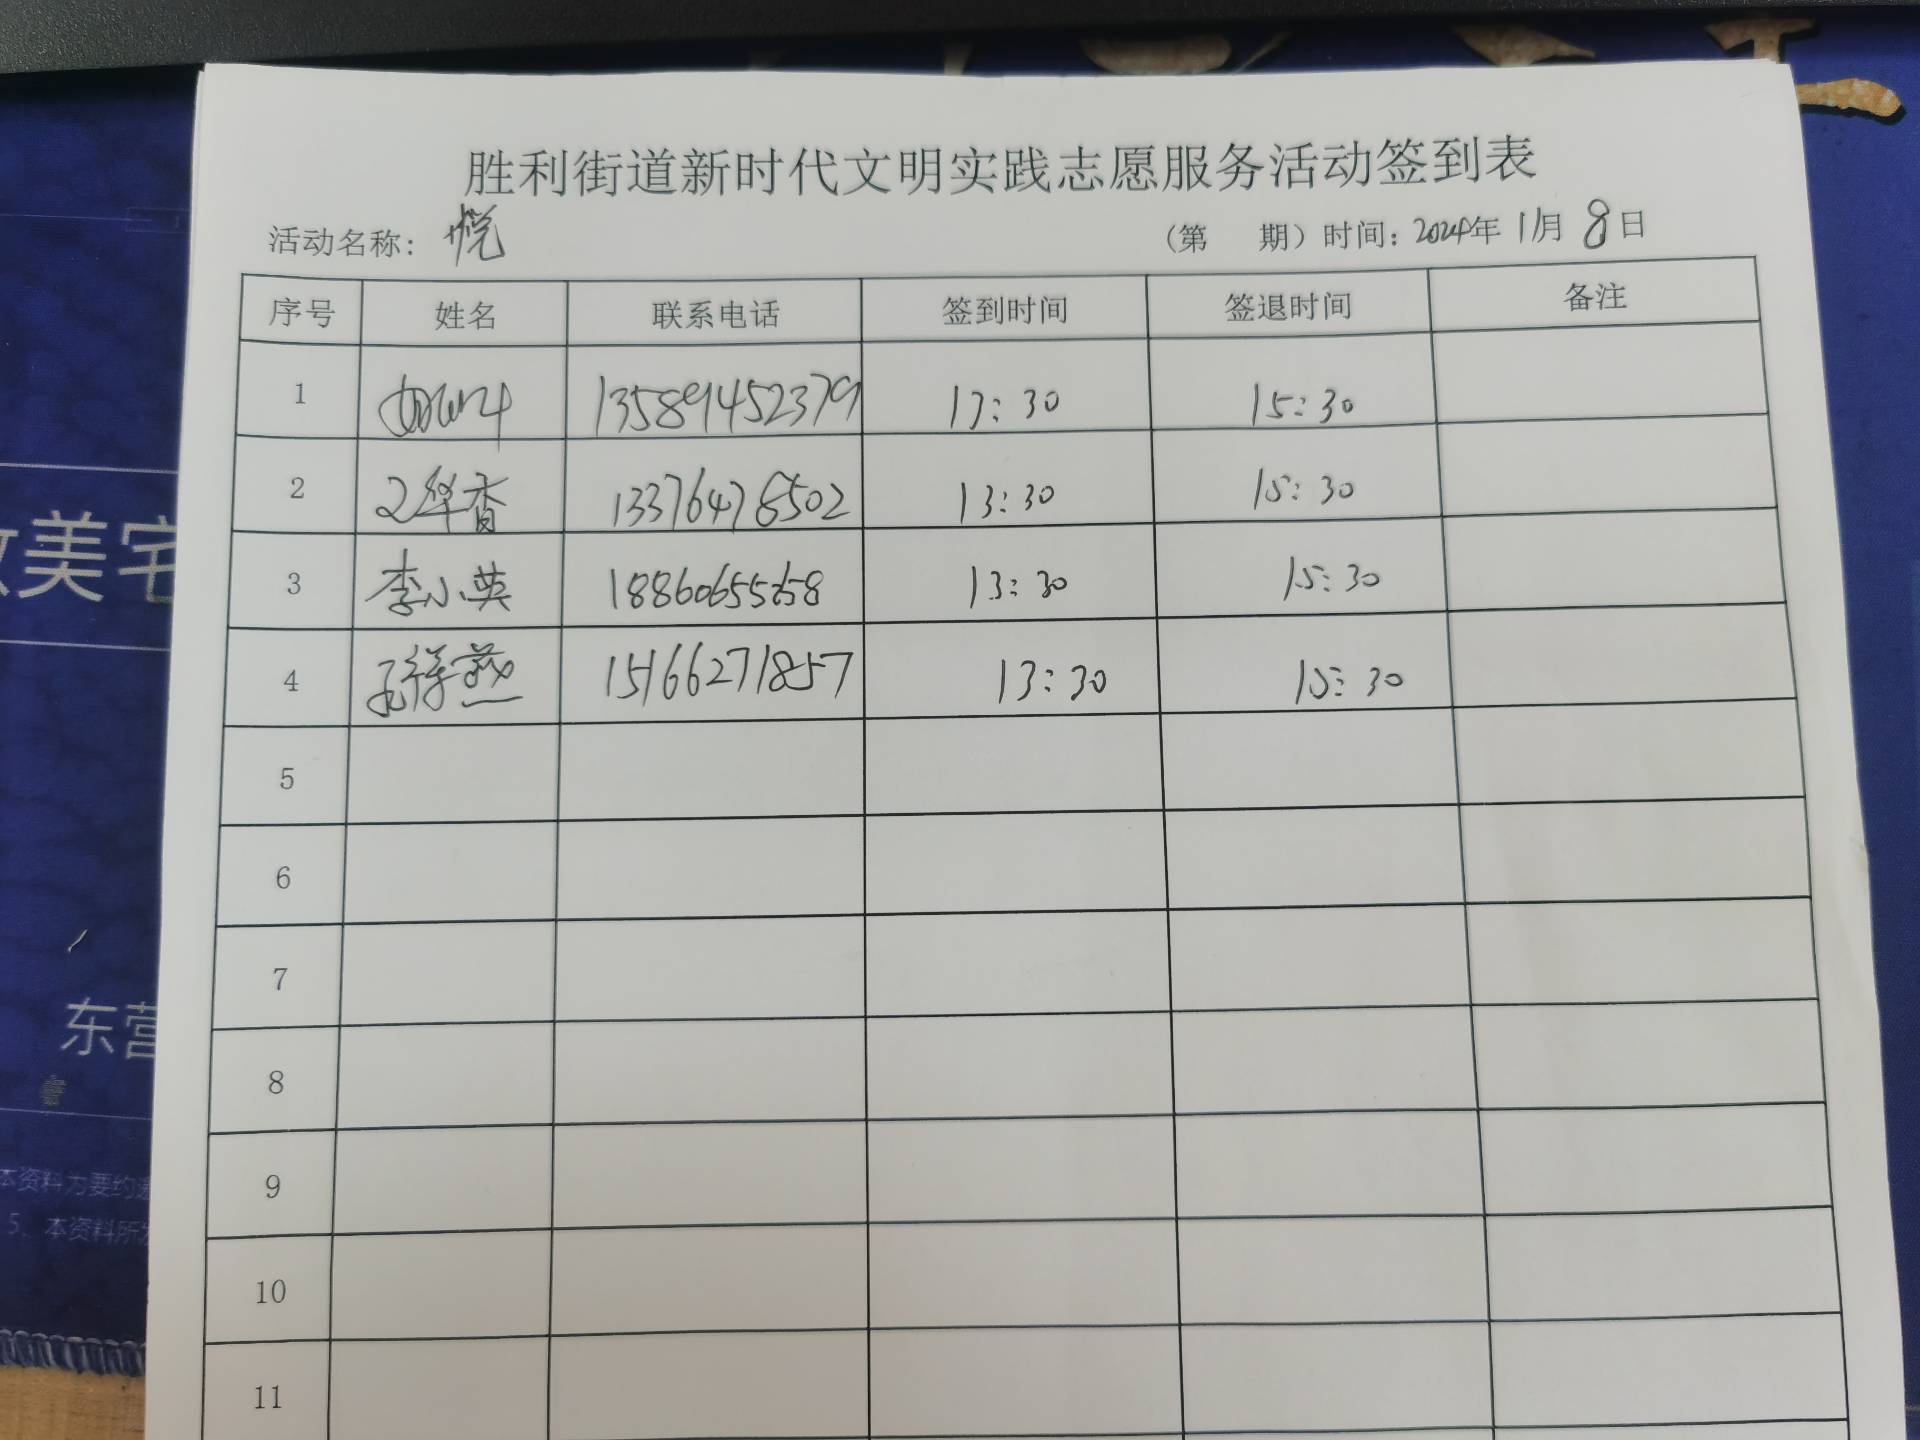 胜利街道新时代文明实践志愿服务活动签到表
活动名称: 悦 (第 期) 时间: 2024年 11月 8日
序号 姓名 联系电话 签到时间 签退时间 备注
1 13589452379 13:30 15:30
2 13376478502 13:30 15:30
3 李小英 13:30 15:30
4 孙祥燕 15166271857 13:30 15:30
5
6
7
8
9
10
11
美宅
东营
本资料为要约邀
5、本资料所